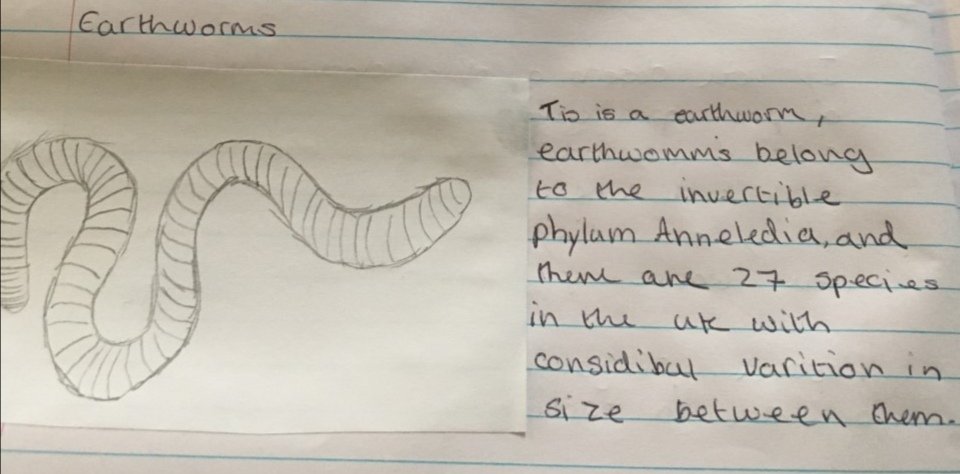 Earthworms
Tis is a earthworm,
earthwomms belong
to the invertible
phylum Anneledia, and
there are 27 species
in the uk with
considibal varition in
size between them.